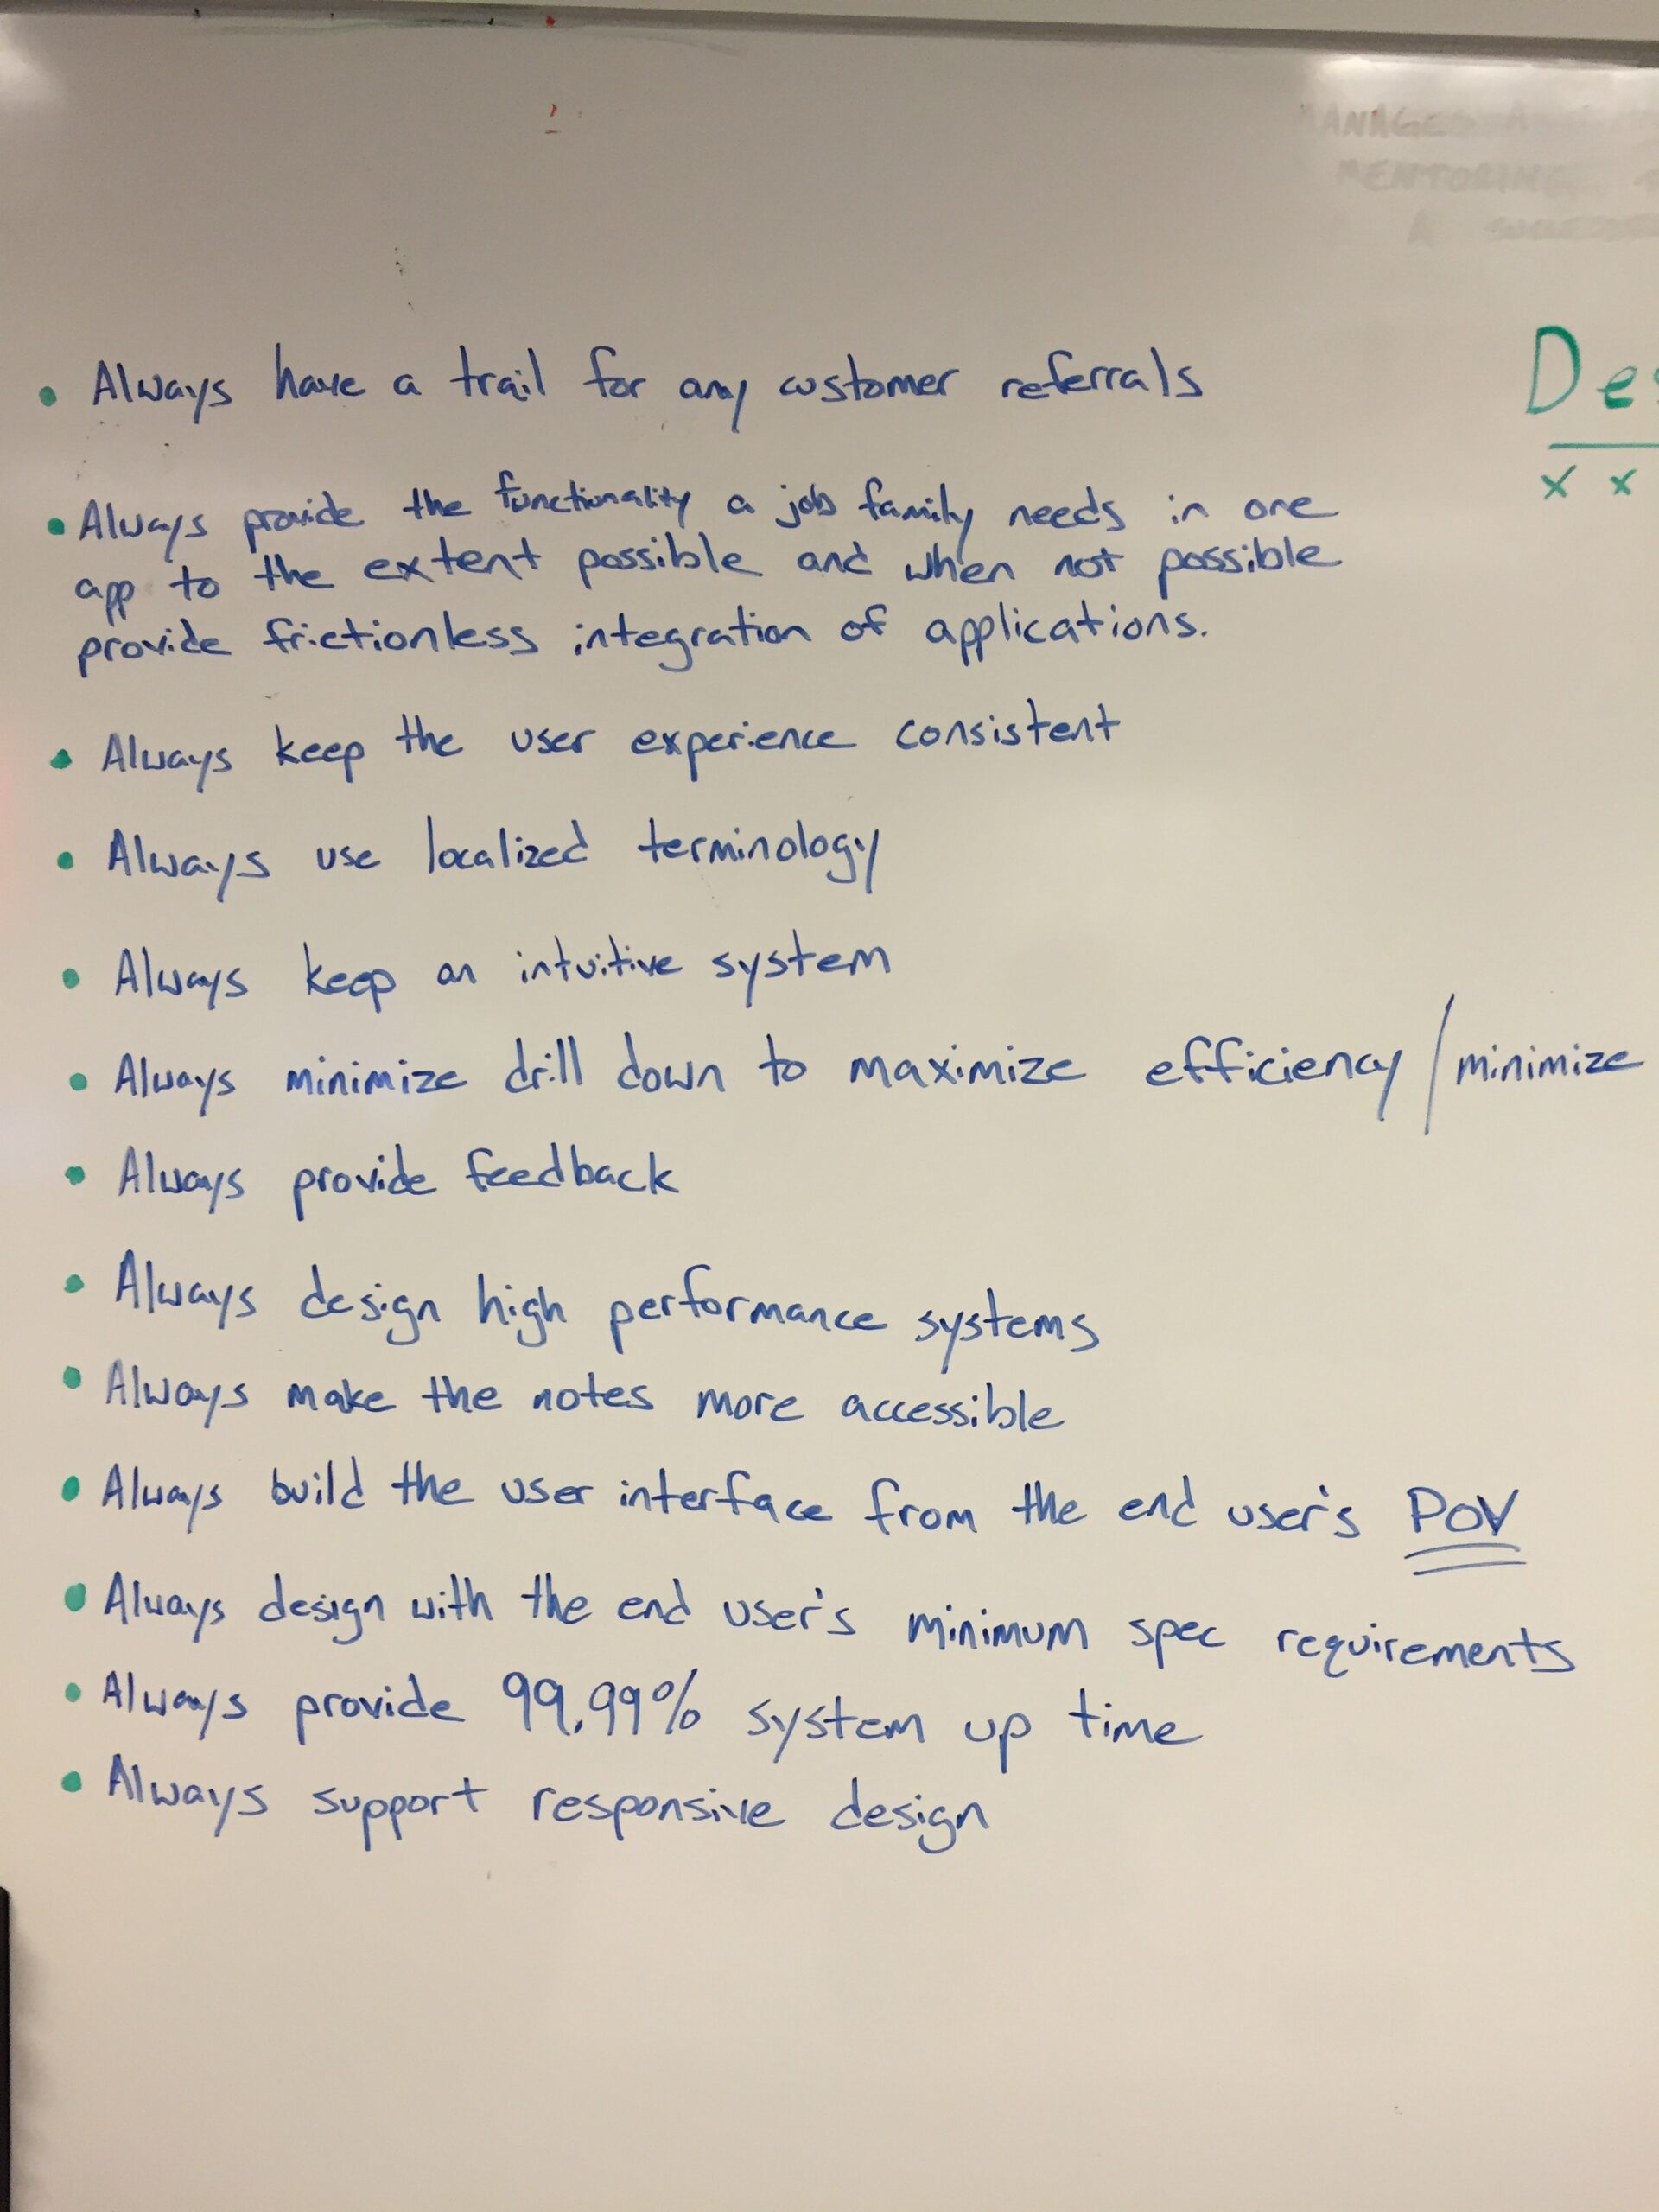 MENTORING
A
• Always have a trail for any customer referrals
Des
x x
• Always provide the functionality a job family needs in one
app to the extent possible and when not possible
provide frictionless integration of applications.
• Always keep the user experience consistent
• Always use localized terminology
• Always keep an intuitive system
• Always minimize drill down to maximize efficiency / minimize
• Always provide feedback
• Always design high performance systems
• Always make the notes more accessible
• Always build the user interface from the end user's POV
• Always design with the end user's minimum spec requirements
• Always provide 99.99% system up time
• Always support responsive design